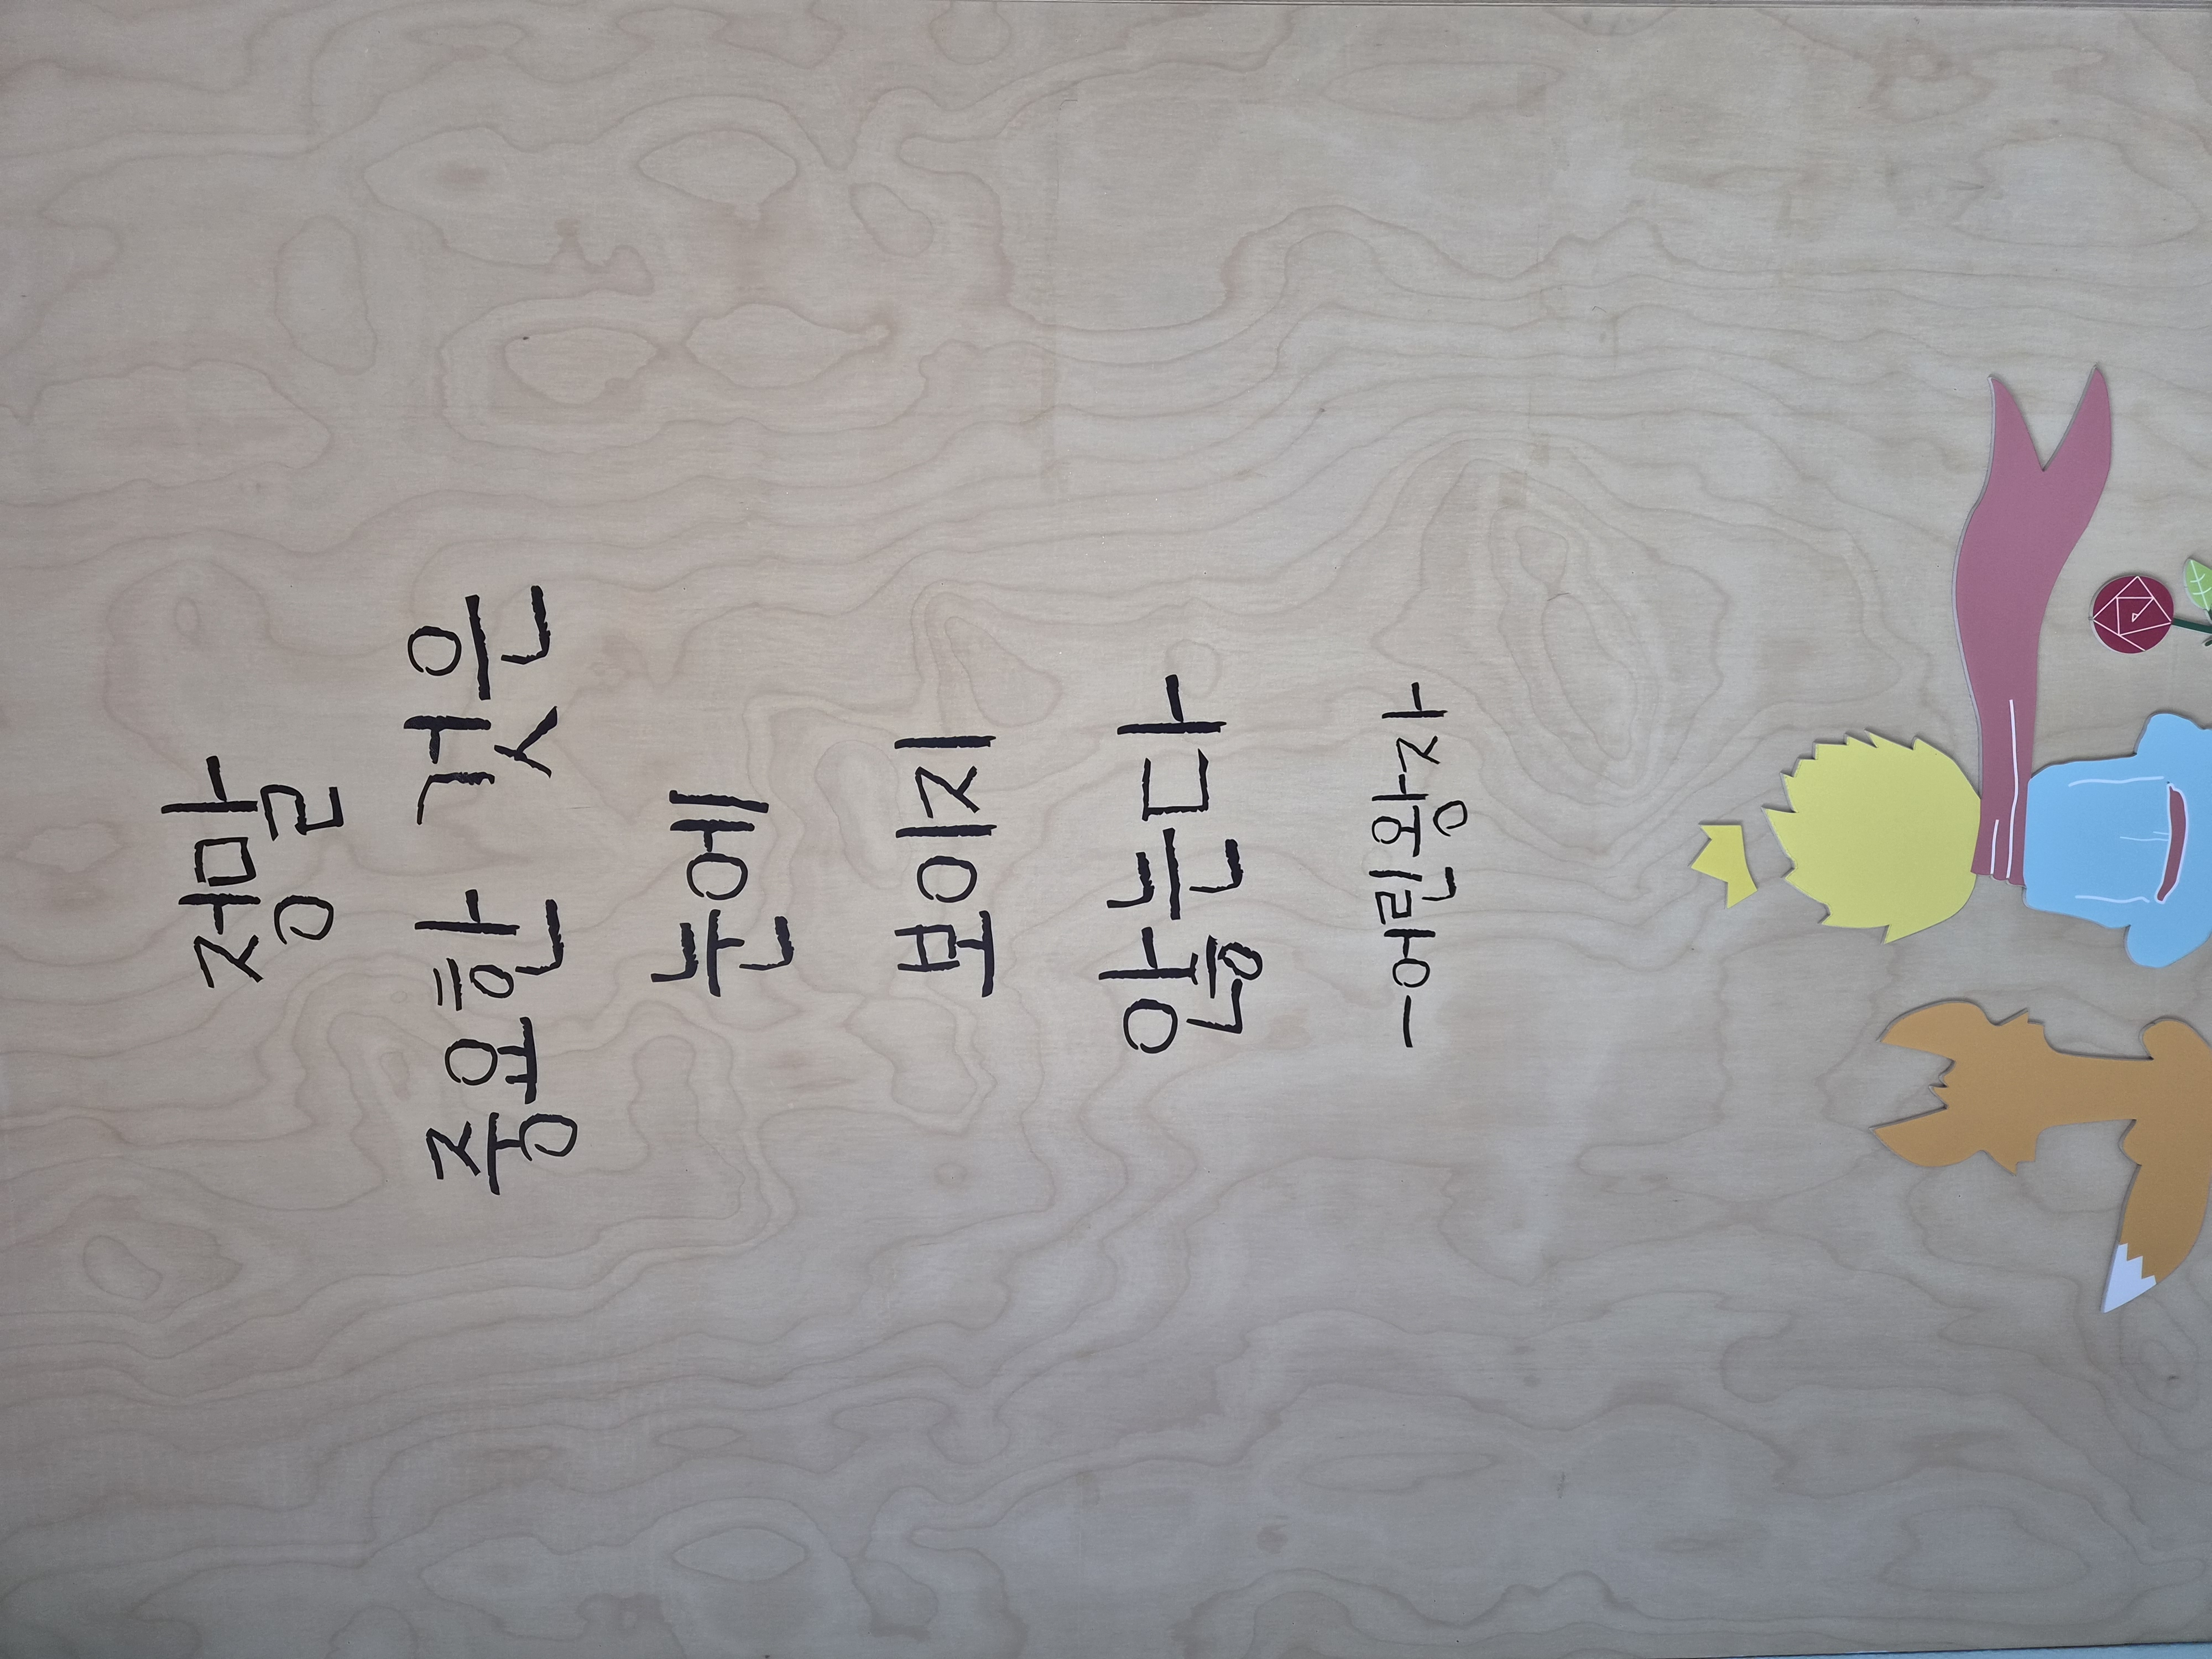 정말
중요한 것은
눈에
보이지
않는다
-어린왕자